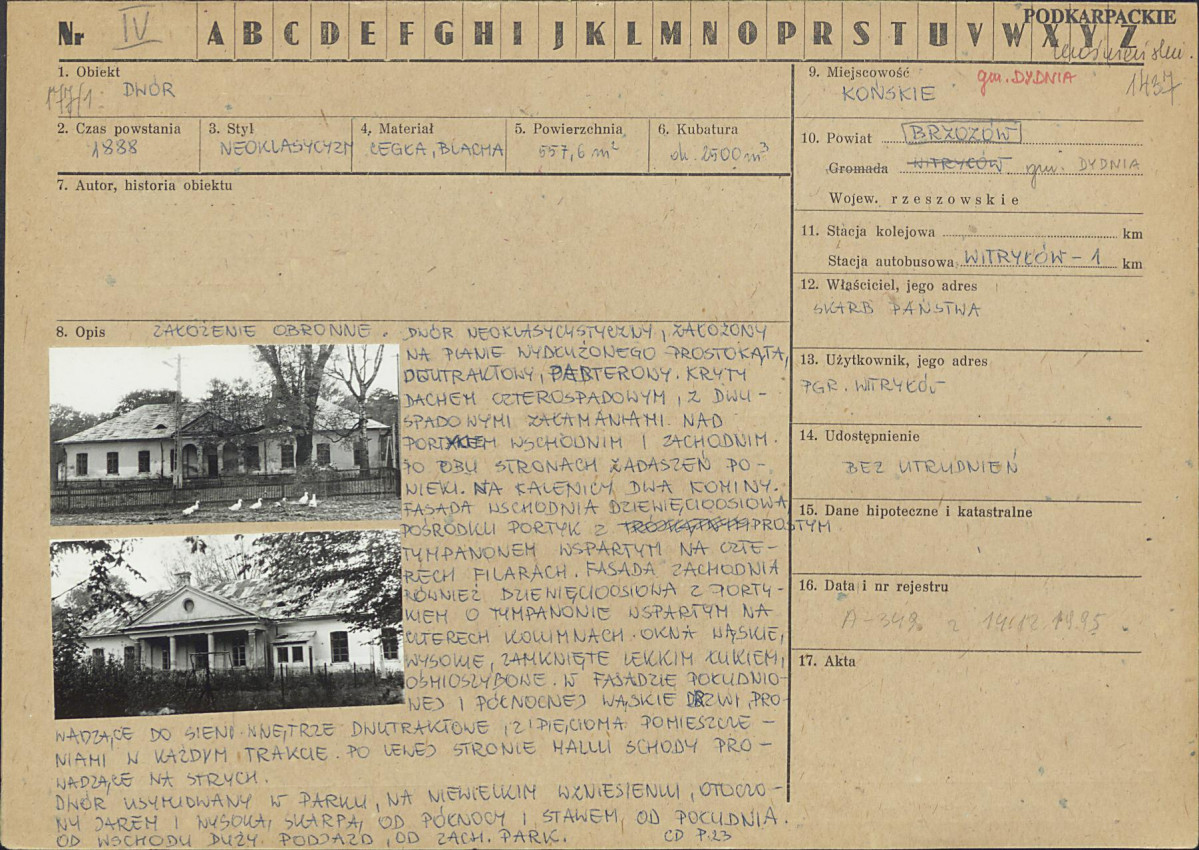 Nr IV A B C D E F G H I J K L M N O P R S T U V W X Y Z
PODKARPACKIE
1. Obiekt
177/1. DWÓR
2. Czas powstania
1888
3. Styl
NEOKLASYCYZM
4. Materiał
CEGŁA, BLACHA
5. Powierzchnia
557,6 m²
6. Kubatura
ok. 2500 m³
7. Autor, historia obiektu
8. Opis ZAŁOŻENIE OBRONNE. DWÓR NEOKLASYCYSTYCZNY, ZAŁOŻONY
NA PLANIE WYDŁUŻONEGO PROSTOKĄTA,
DWUTRAKTOWY, PARTEROWY. KRYTY
DACHEM CZTEROSPADOWYM, Z DWU-
SPADOWYMI ZAŁAMANIAMI NAD
PORTYKIEM WSCHODNIM I ZACHODNIM.
PO OBU STRONACH ZADASZEŃ PO-
WIEKI. NA KALENICY DWA KOMINY.
FASADA WSCHODNIA DZIEWIĘCIOOSIOWA
POŚRODKU PORTYK Z PROSTYM
TYMPANONEM WSPARTYM NA CZTE-
RECH FILARACH. FASADA ZACHODNIA
RÓWNIEŻ DZIEWIĘCIOOSIOWA Z PORTY-
KIEM O TYMPANONIE WSPARTYM NA
CZTERECH KOLUMNACH. OKNA WĄSKIE,
WYSOKIE, ZAMKNIĘTE LEKKIM ŁUKIEM,
OŚMIOSZYBOWE. W FASADZIE POŁUDNIO-
WEJ I PÓŁNOCNEJ WĄSKIE DRZWI, PRO-
WADZĄCE DO SIENI. WNĘTRZE DWUTRAKTOWE, Z PIĘCIOMA POMIESZCZE-
NIAMI W KAŻDYM TRAKCIE. PO LEWEJ STRONIE HALLU SCHODY PRO-
WADZĄCE NA STRYCH.
DWÓR USYTUOWANY W PARKU, NA NIEWIELKIM WZNIESIENIU, OTOCZO-
NY JAREM I WYSOKĄ SKARPĄ OD PÓŁNOCY I STAWEM, OD POŁUDNIA.
OD WSCHODU DUŻY PODJAZD, OD ZACH. PARK. CD P.23
9. Miejscowość gm. DYDNIA
KOŃSKIE 1437
10. Powiat BRZOZÓW
Gromada WITRYŁÓW gm. DYDNIA
Wojew. rzeszowskie
11. Stacja kolejowa km
Stacja autobusowa WITRYŁÓW - 1 km
12. Właściciel, jego adres
SKARB PAŃSTWA
13. Użytkownik, jego adres
PGR. WITRYŁÓW
14. Udostępnienie
BEZ UTRUDNIEŃ
15. Dane hipoteczne i katastralne
16. Data i nr rejestru
A-349 z 14.12.1995
17. Akta